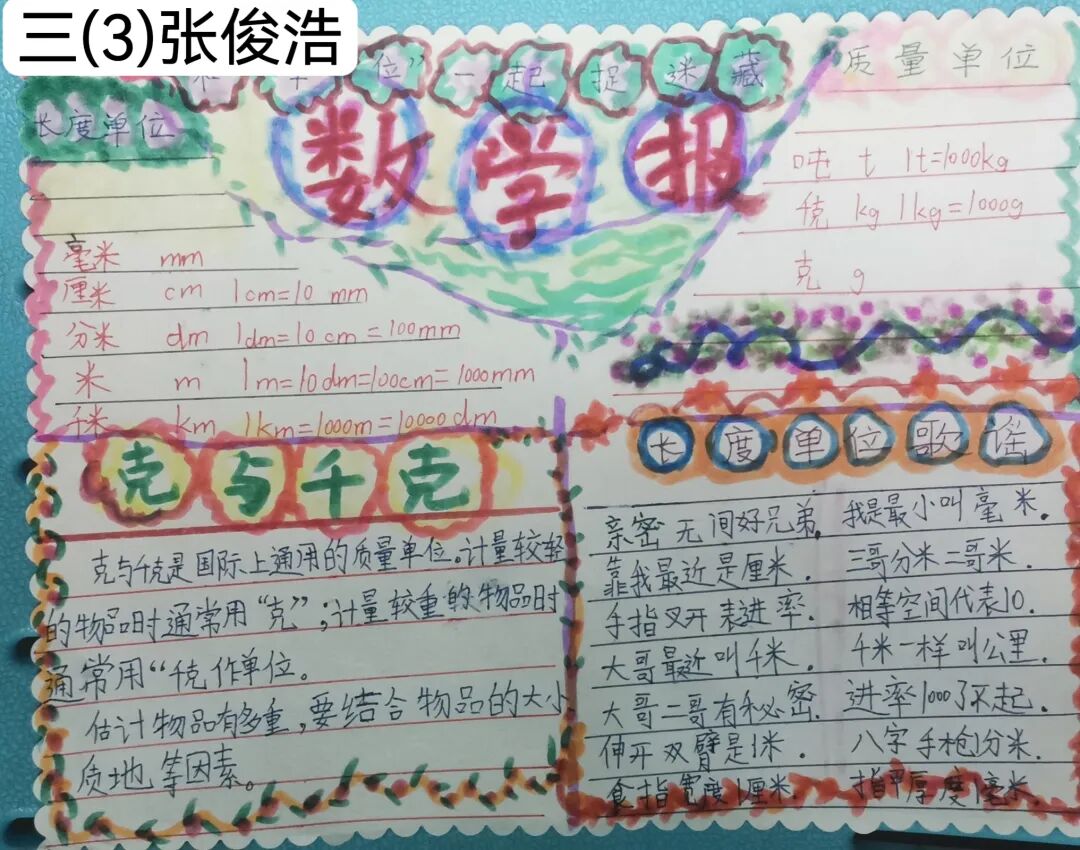 三(3)张俊浩
和“单位”一起捉迷藏
数学报
长度单位
毫米 mm
厘米 cm 1cm=10 mm
分米 dm 1dm=10 cm=100mm
米 m 1m=10dm=100cm=1000mm
千米 km 1km=1000m=10000dm
质量单位
吨 t 1t=1000kg
千克 kg 1kg=1000g
克 g
克与千克
克与千克是国际上通用的质量单位。计量较轻
的物品时通常用“克”;计量较重的物品时
通常用“千克作单位。
估计物品有多重,要结合物品的大小
质地等因素。
长度单位歌谣
亲密无间好兄弟, 我是最小叫毫米.
靠我最近是厘米. 三哥分米二哥米.
手指叉开表进率. 相等空间代表10.
大哥最近叫千米. 千米一样叫公里.
大哥二哥有秘密. 进率1000了不起.
伸开双臂是1米. 八字手枪1分米.
食指宽度1厘米. 指甲厚度1毫米.